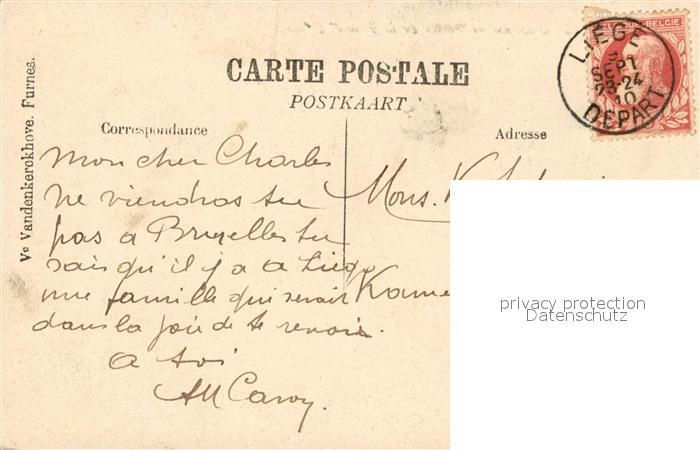 CARTE POSTALE
POSTKAART
Correspondance
Adresse
Vᵉ Vandenkerckhove. Furnes.
LIÈGE
SEPT
23-24
10
DÉPART
BELGIE
Mon cher Charles
Ne viendras tu
pas a Bruxelles tu
sais qu'il y a a Liège
une famille qui serait
dans la joie de te revoir.
a toi
Mons.
privacy protection
Datenschutz